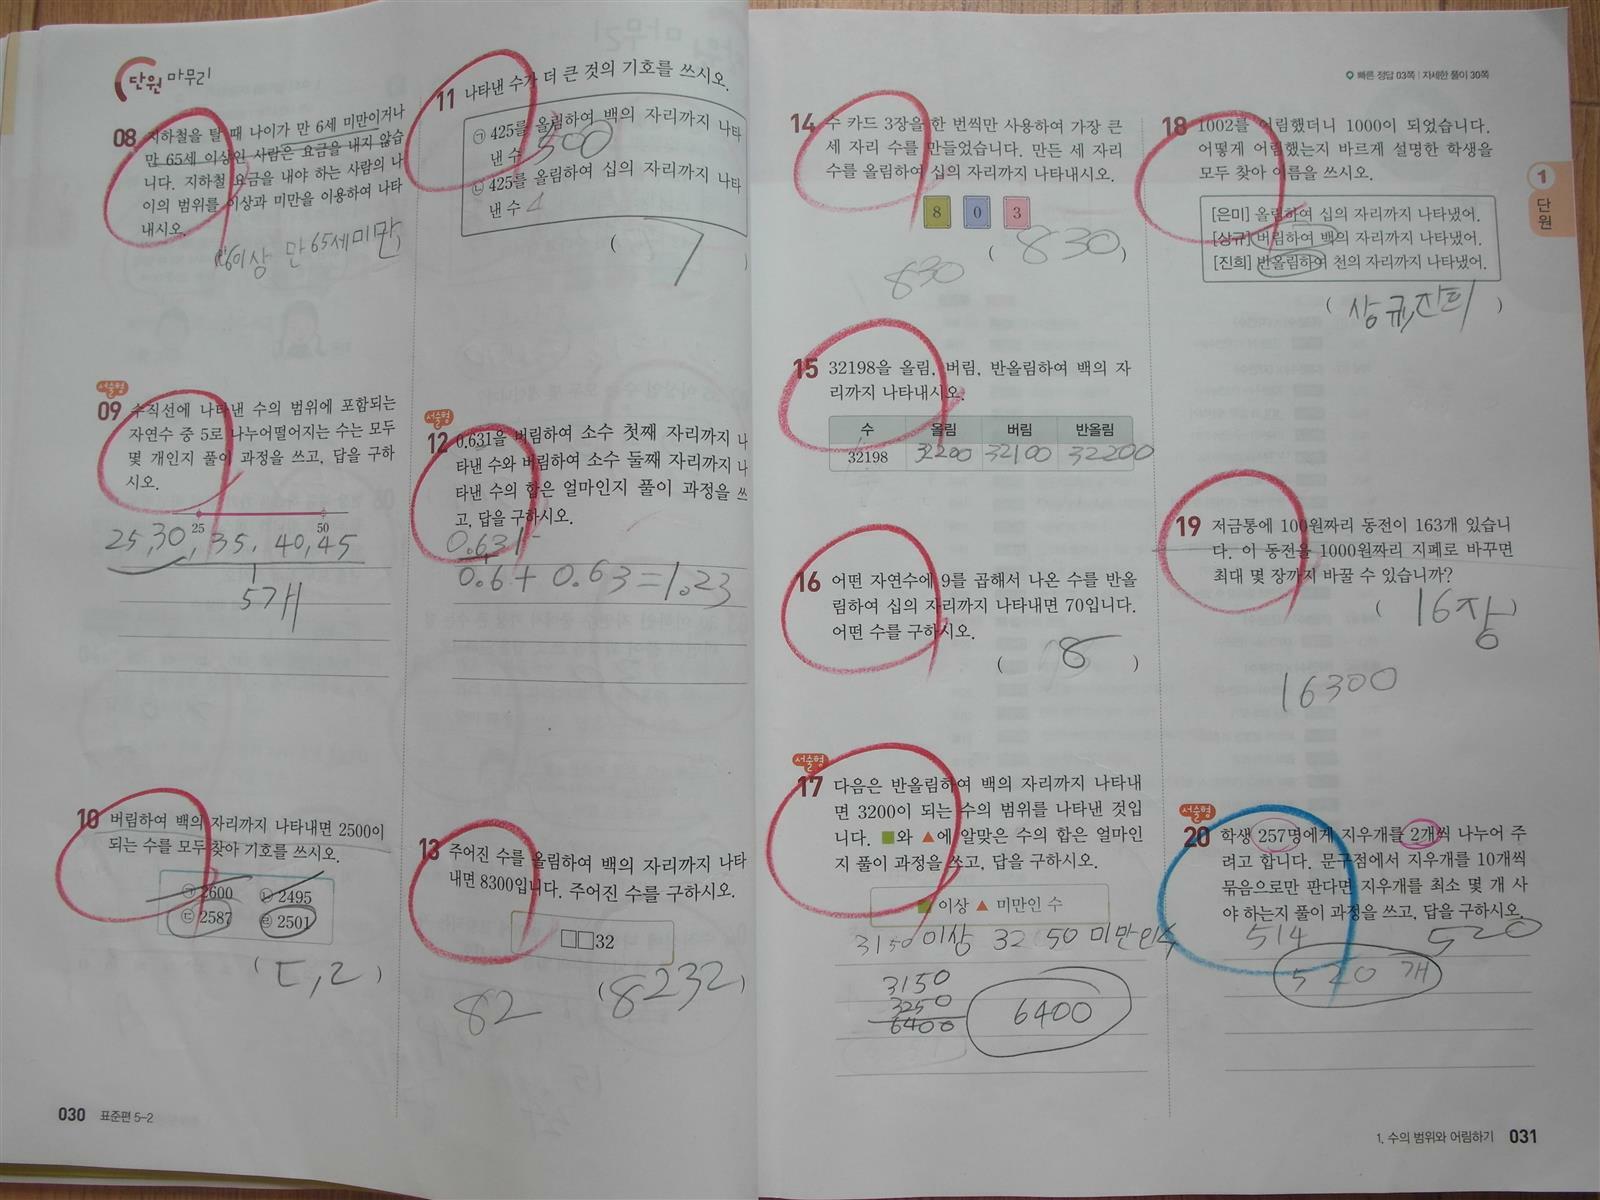 단원 마무리
08 지하철을 탈 때 나이가 만 6세 미만이거나
만 65세 이상인 사람은 요금을 내지 않습
니다. 지하철 요금을 내야 하는 사람의 나
이의 범위를 이상과 미만을 이용하여 나타
내시오.
6이상 만 65세미만
서술형
09 수직선에 나타낸 수의 범위에 포함되는
자연수 중 5로 나누어떨어지는 수는 모두
몇 개인지 풀이 과정을 쓰고, 답을 구하
시오.
25 50
25, 30, 35, 40, 45
5개
10 버림하여 백의 자리까지 나타내면 2500이
되는 수를 모두 찾아 기호를 쓰시오.
㉠ 2600 ㉡ 2495
㉢ 2587 ㉣ 2501
(ㄷ, ㄹ)
11 나타낸 수가 더 큰 것의 기호를 쓰시오.
㉠ 425를 올림하여 백의 자리까지 나타
낸 수 500
㉡ 425를 올림하여 십의 자리까지 나타
낸 수 4
( ㄱ )
서술형
12 0.631을 버림하여 소수 첫째 자리까지 나
타낸 수와 버림하여 소수 둘째 자리까지 나
타낸 수의 합은 얼마인지 풀이 과정을 쓰
고, 답을 구하시오.
0.631
0.6 + 0.63 = 1.23
13 주어진 수를 올림하여 백의 자리까지 나타
내면 8300입니다. 주어진 수를 구하시오.
□□32
82 (8232)
030 표준편 5-2
빠른 정답 03쪽 | 자세한 풀이 30쪽
14 수 카드 3장을 한 번씩만 사용하여 가장 큰
세 자리 수를 만들었습니다. 만든 세 자리
수를 올림하여 십의 자리까지 나타내시오.
8 0 3
( 830 )
830
15 32198을 올림, 버림, 반올림하여 백의 자
리까지 나타내시오.
수 올림 버림 반올림
32198 32200 32100 32200
16 어떤 자연수에 9를 곱해서 나온 수를 반올
림하여 십의 자리까지 나타내면 70입니다.
어떤 수를 구하시오.
( 8 )
서술형
17 다음은 반올림하여 백의 자리까지 나타내
면 3200이 되는 수의 범위를 나타낸 것입
니다. ■와 ▲에 알맞은 수의 합은 얼마인
지 풀이 과정을 쓰고, 답을 구하시오.
■ 이상 ▲ 미만인 수
3150 이상 3250 미만인수
3150
3250
6400
6400
18 1002를 어림했더니 1000이 되었습니다.
어떻게 어림했는지 바르게 설명한 학생을
모두 찾아 이름을 쓰시오.
[은미] 올림하여 십의 자리까지 나타냈어.
[상규] 버림하여 백의 자리까지 나타냈어.
[진희] 반올림하여 천의 자리까지 나타냈어.
( 상규, 진희 )
1
단원
19 저금통에 100원짜리 동전이 163개 있습니
다. 이 동전을 1000원짜리 지폐로 바꾸면
최대 몇 장까지 바꿀 수 있습니까?
( 16장 )
16300
서술형
20 학생 257명에게 지우개를 2개씩 나누어 주
려고 합니다. 문구점에서 지우개를 10개씩
묶음으로만 판다면 지우개를 최소 몇 개 사
야 하는지 풀이 과정을 쓰고, 답을 구하시오.
514 520
520개
1. 수의 범위와 어림하기 031